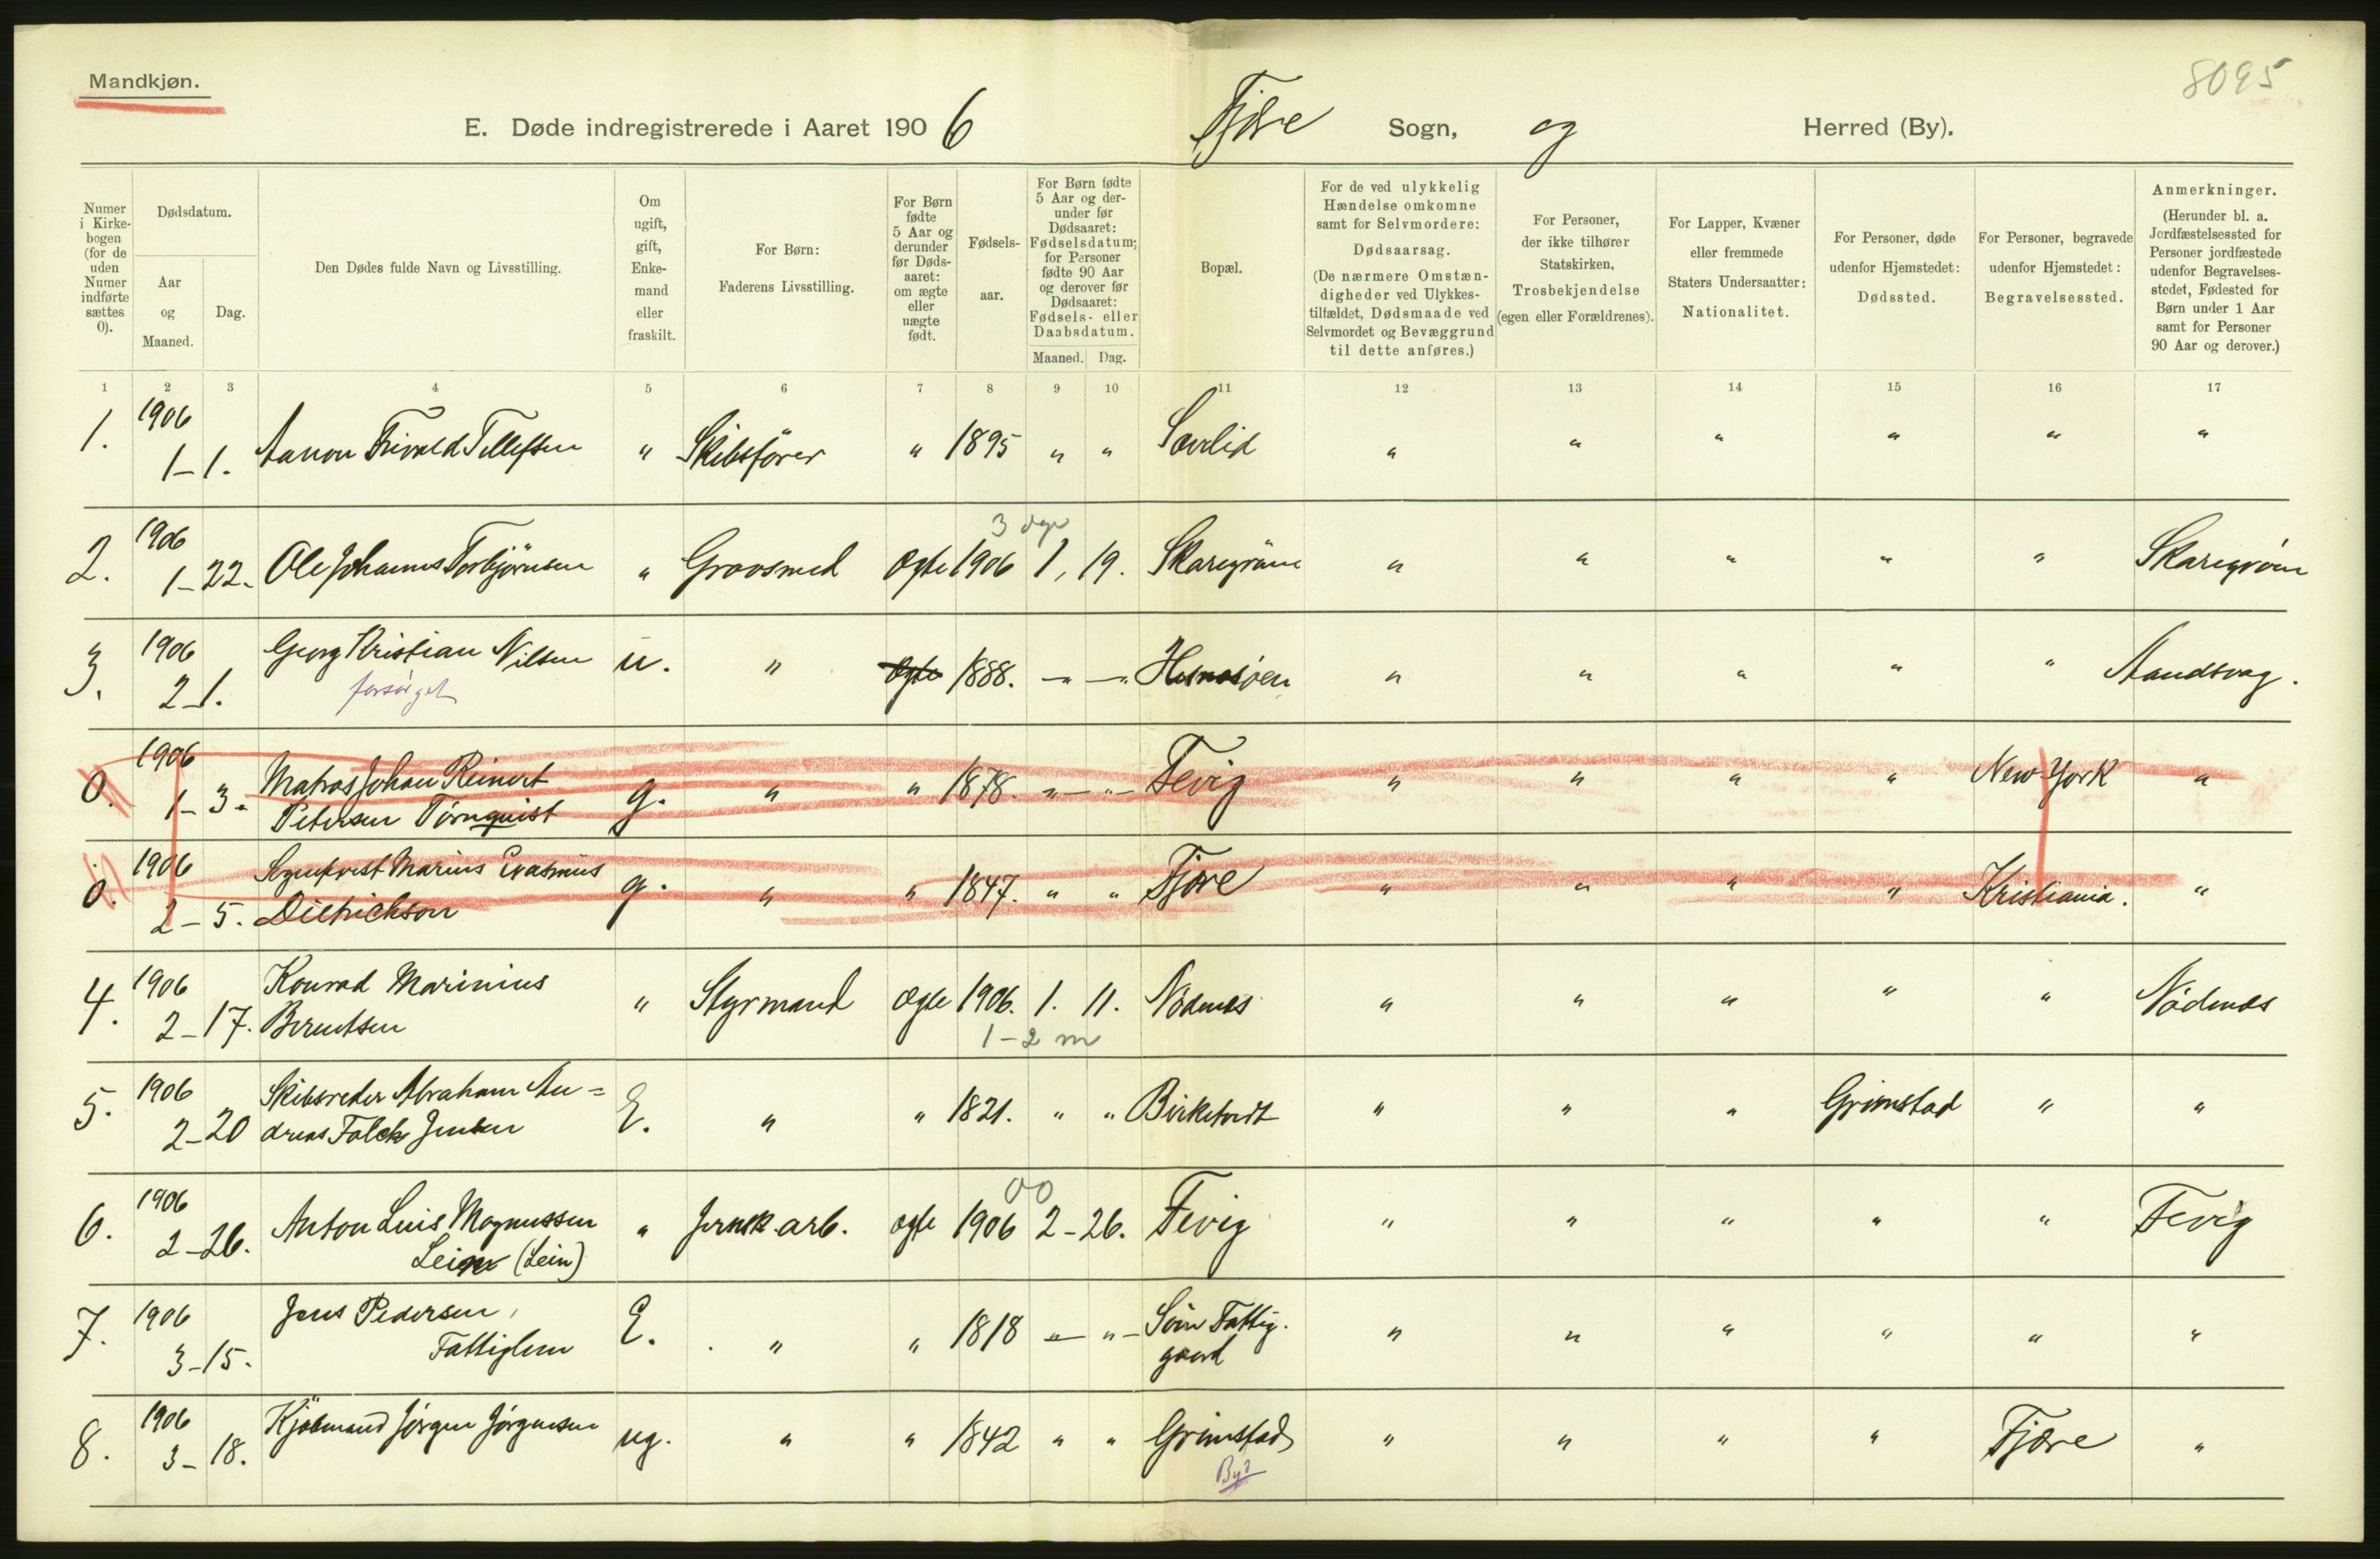 Mandkjøn.
8095
E. Døde indregistrerede i Aaret 1906 Fjære Sogn, og Herred (By).
Numer i Kirkebogen (for de uden Numer indførte sættes 0).
Dødsdatum.
Aar og Maaned.
Dag.
Den Dødes fulde Navn og Livsstilling.
Om ugift, gift, Enkemand eller fraskilt.
For Børn: Faderens Livsstilling.
For Børn fødte 5 Aar og derunder før Dødsaaret: om ægte eller uægte født.
Fødselsaar.
For Børn fødte 5 Aar og derunder før Dødsaaret: Fødselsdatum; for Personer fødte 90 Aar og derover før Dødsaaret: Fødsels- eller Daabsdatum.
Maaned. Dag.
Bopæl.
For de ved ulykkelig Hændelse omkomne samt for Selvmordere: Dødsaarsag. (De nærmere Omstændigheder ved Ulykkestilfældet, Dødsmaade ved Selvmordet og Bevæggrund til dette anføres.)
For Personer, der ikke tilhører Statskirken, Trosbekjendelse (egen eller Forældrenes).
For Lapper, Kvæner eller fremmede Staters Undersaatter: Nationalitet.
For Personer, døde udenfor Hjemstedet: Dødssted.
For Personer, begravede udenfor Hjemstedet: Begravelsessted.
Anmerkninger. (Herunder bl. a. Jordfæstelsessted for Personer jordfæstede udenfor Begravelsesstedet, Fødested for Børn under 1 Aar samt for Personer 90 Aar og derover.)
1 2 3 4 5 6 7 8 9 10 11 12 13 14 15 16 17
1. 1906 1-1. Aanon Tellefsen " Skibsfører " 1895 " " Sævlid " " " " " "
3 dge
2. 1906 1-22. Ole Johannes Torbjørnsen " Grovsmed ægte 1906 1, 19. Skaregrøm " " " " " Skaregrøm
3. 1906 2-1. Georg Kristian Nilsen u. " ægte 1888. " " Hesnesøen " " " " " Aandsvag.
forsørget
0. 1906 1-3. Matros Johan Reinert g. " " 1878. " " Fevig " " " " New-York "
Petersen Tørnquist
0. 1906 2-5. Marius Erasmus g. " " 1847. " " Fjære " " " " Kristiania. "
Dietrichson
4. 1906 2-17. Konrad Marinius " Styrmand ægte 1906. 1. 11. Nødenes " " " " " Nødenes
Berentsen
1-2 m
5. 1906 2-20 Skibsreder Abraham An= E. " " 1821. " " Birketvedt " " " Grimstad " "
dreas Falck Jensen
00
6. 1906 2-26. Anton Luis Magnussen " Jernsk.arb. ægte 1906 2-26. Fevig " " " " " Fevig
Lein (Lein)
7. 1906 3-15. Jens Pedersen, E. " " 1818 " " Søm Fattig. " " " " " "
Fattiglem gaard
8. 1906 3-18. Kjøbmand Jørgen Jørgensen ug. " " 1842 " " Grimstad " " " " Fjære "
By?